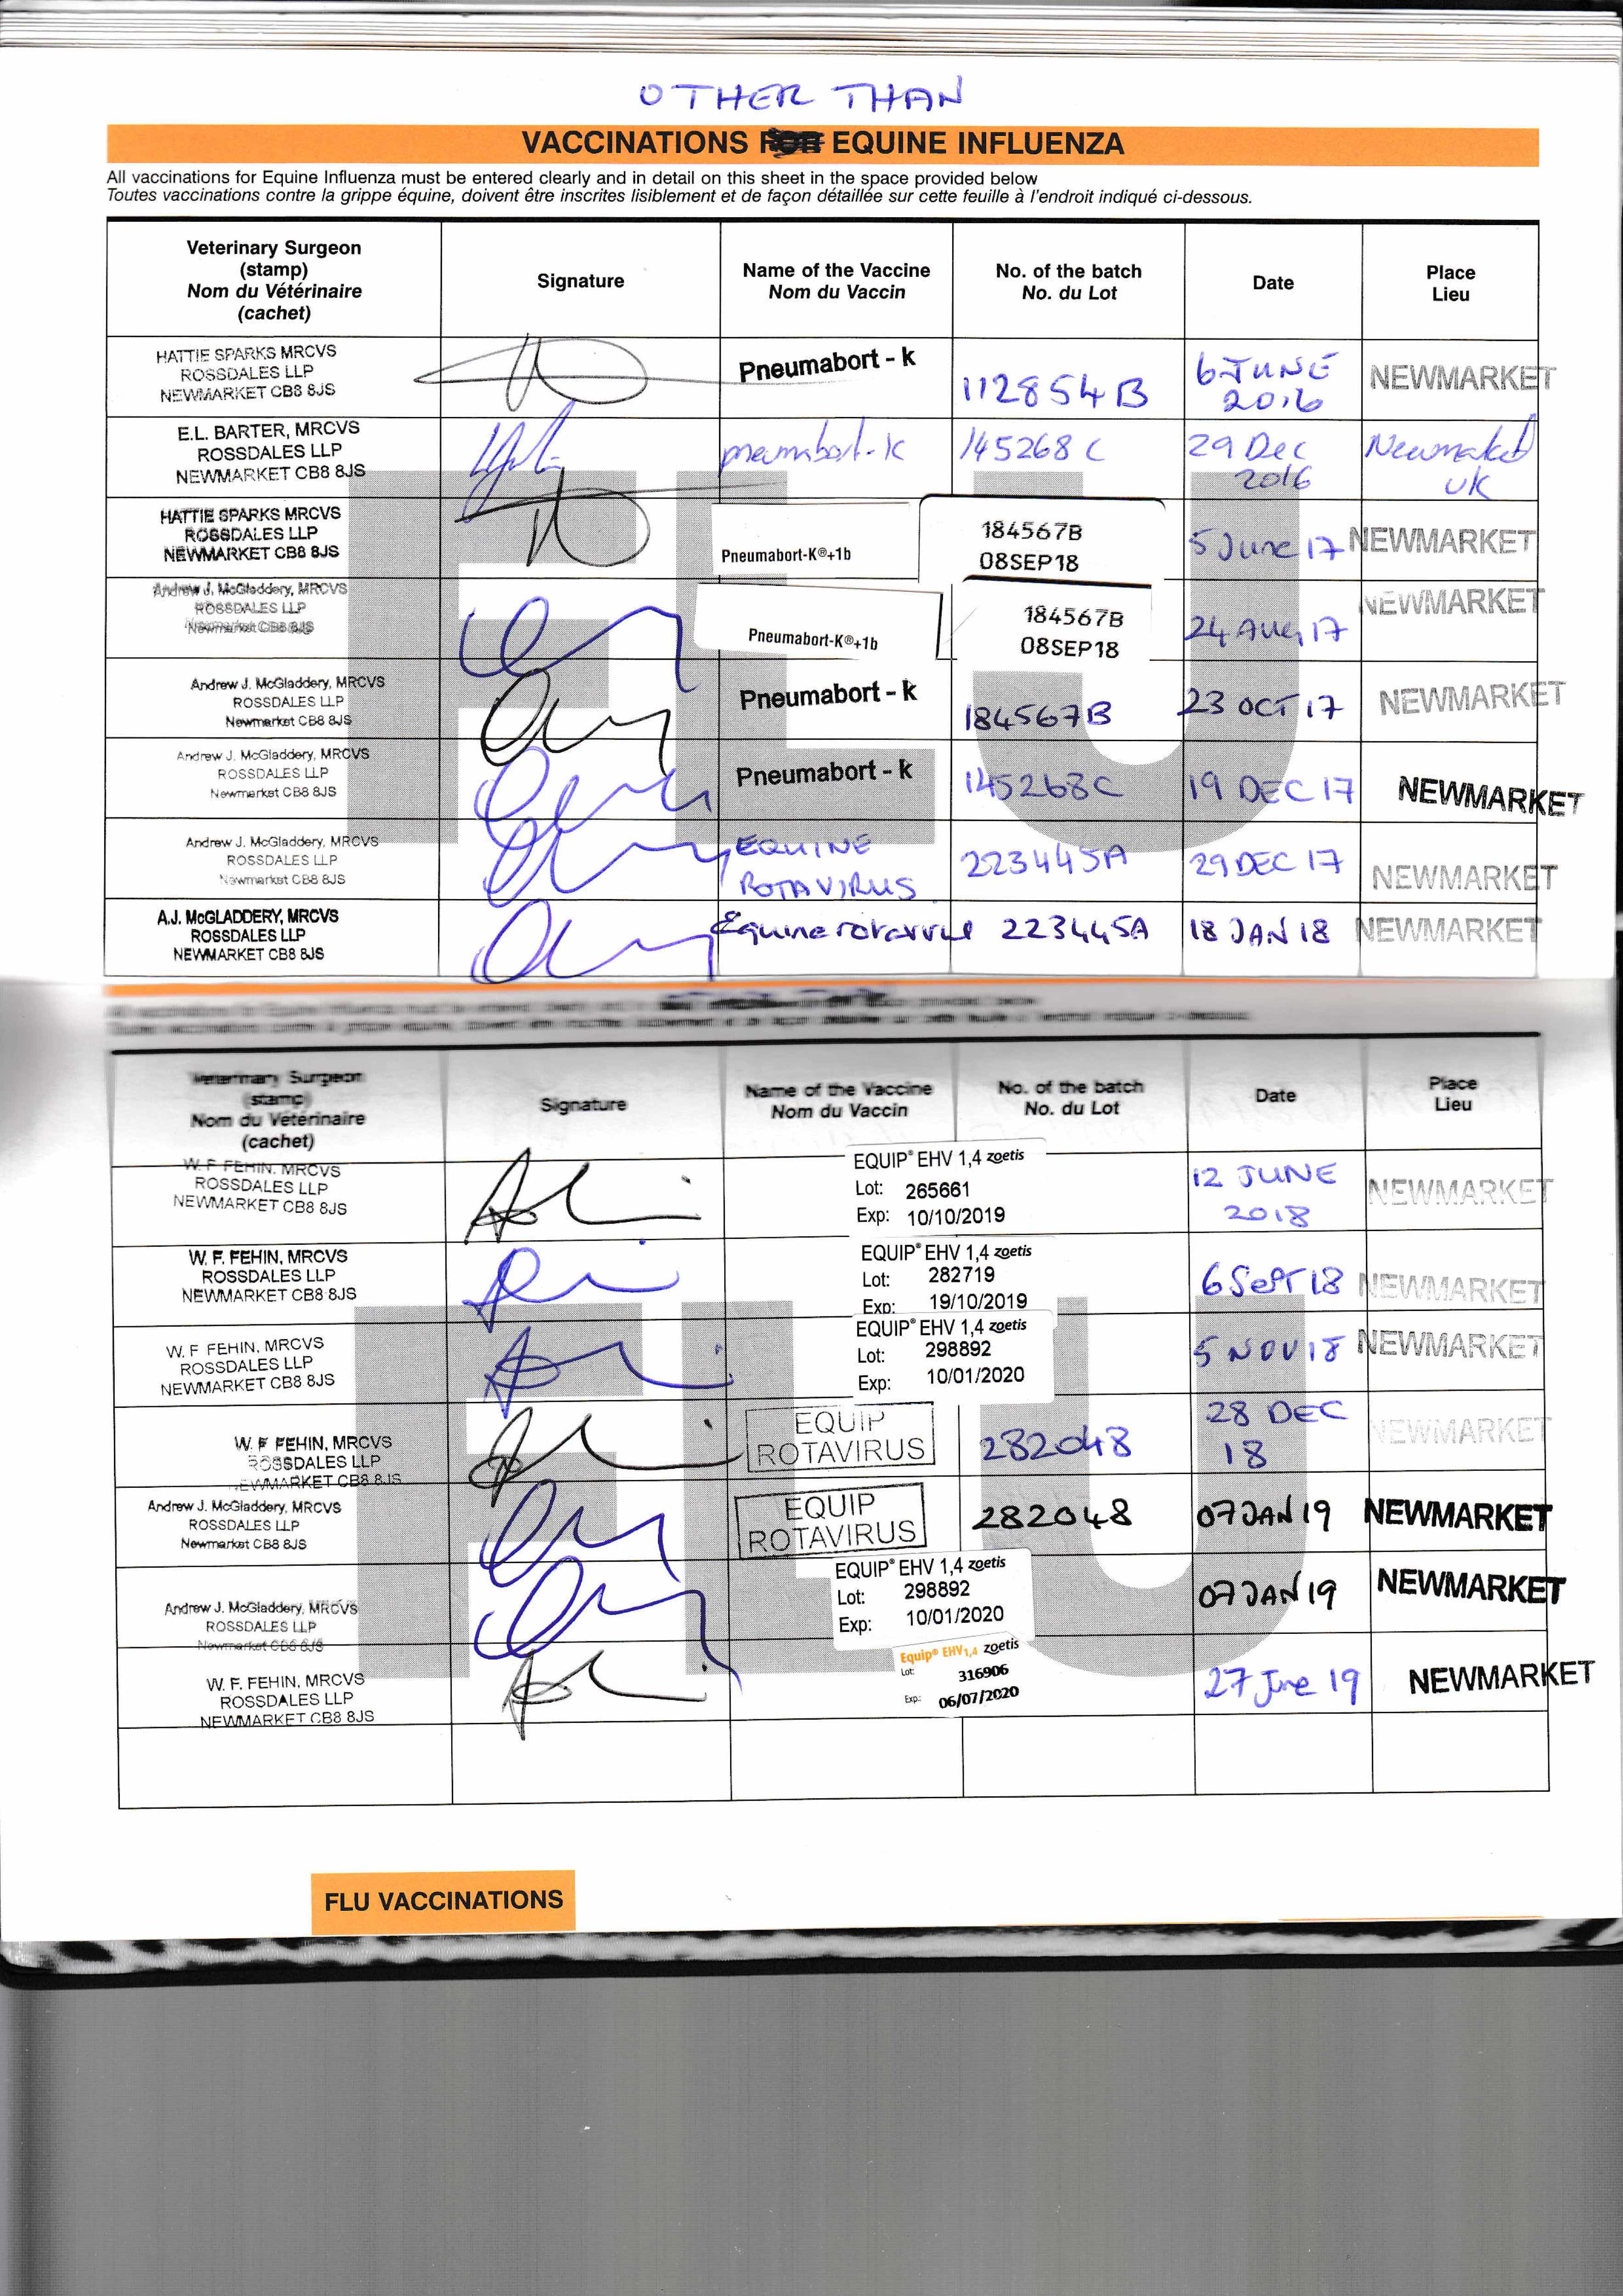 OTHER THAN
VACCINATIONS EQUINE INFLUENZA
All vaccinations for Equine Influenza must be entered clearly and in detail on this sheet in the space provided below
Toutes vaccinations contre la grippe équine, doivent être inscrites lisiblement et de façon détaillée sur cette feuille à l'endroit indiqué ci-dessous.
Veterinary Surgeon
(stamp)
Nom du Vétérinaire
(cachet)
Signature
Name of the Vaccine
Nom du Vaccin
No. of the batch
No. du Lot
Date
Place
Lieu
HATTIE SPARKS MRCVS
ROSSDALES LLP
NEWMARKET CB8 8JS
Pneumabort - k
112854B
6 JUNE
2016
NEWMARKET
E.L. BARTER, MRCVS
ROSSDALES LLP
NEWMARKET CB8 8JS
pneumabort-K
145268C
29 Dec
2016
Newmarket
UK
HATTIE SPARKS MRCVS
ROSSDALES LLP
NEWMARKET CB8 8JS
Pneumabort-K®+1b
184567B
08SEP18
5 June 17
NEWMARKET
Andrew J. McGladdery, MRCVS
ROSSDALES LLP
Newmarket CB8 8JS
Pneumabort-K®+1b
184567B
08SEP18
24 AUG 17
NEWMARKET
Andrew J. McGladdery, MRCVS
ROSSDALES LLP
Newmarket CB8 8JS
Pneumabort - k
184567B
23 OCT 17
NEWMARKET
Andrew J. McGladdery, MRCVS
ROSSDALES LLP
Newmarket CB8 8JS
Pneumabort - k
145268C
19 DEC 17
NEWMARKET
Andrew J. McGladdery, MRCVS
ROSSDALES LLP
Newmarket CB8 8JS
EQUINE
ROTAVIRUS
223445A
29 DEC 17
NEWMARKET
A.J. McGLADDERY, MRCVS
ROSSDALES LLP
NEWMARKET CB8 8JS
Equine
223445A
18 JAN 18
NEWMARKET
FLU
Veterinary Surgeon
(stamp)
Nom du Vétérinaire
(cachet)
Signature
Name of the Vaccine
Nom du Vaccin
No. of the batch
No. du Lot
Date
Place
Lieu
W. F. FEHIN, MRCVS
ROSSDALES LLP
NEWMARKET CB8 8JS
EQUIP® EHV 1,4 zoetis
Lot: 265661
Exp: 10/10/2019
12 JUNE
2018
NEWMARKET
W. F. FEHIN, MRCVS
ROSSDALES LLP
NEWMARKET CB8 8JS
EQUIP® EHV 1,4 zoetis
Lot: 282719
Exp: 19/10/2019
6 Sept 18
NEWMARKET
W. F FEHIN, MRCVS
ROSSDALES LLP
NEWMARKET CB8 8JS
EQUIP® EHV 1,4 zoetis
Lot: 298892
Exp: 10/01/2020
5 NOV 18
NEWMARKET
W. F FEHIN, MRCVS
ROSSDALES LLP
NEWMARKET CB8 8JS
EQUIP
ROTAVIRUS
282048
28 DEC
18
NEWMARKET
Andrew J. McGladdery, MRCVS
ROSSDALES LLP
Newmarket CB8 8JS
EQUIP
ROTAVIRUS
282048
07 JAN 19
NEWMARKET
Andrew J. McGladdery, MRCVS
ROSSDALES LLP
Newmarket CB8 8JS
EQUIP® EHV 1,4 zoetis
Lot: 298892
Exp: 10/01/2020
07 JAN 19
NEWMARKET
W. F. FEHIN, MRCVS
ROSSDALES LLP
NEWMARKET CB8 8JS
Equip® EHV1,4 zoetis
Lot: 316906
Exp.: 06/07/2020
27 June 19
NEWMARKET
FLU
FLU VACCINATIONS